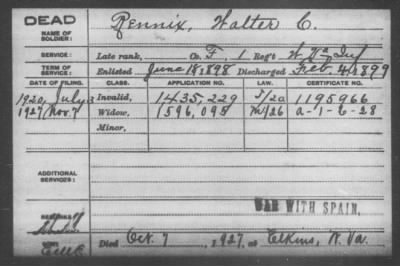 DEAD
NAME OF SOLDIER: Rennix, Walter C.
SERVICE: Late rank, Co. F, 1 Reg't W. Va. Inf
TERM OF SERVICE: Enlisted June 18, 1898 Discharged Feb. 4, 1899
DATE OF FILING. CLASS. APPLICATION NO. LAW. CERTIFICATE NO.
1920, July 13 Invalid, 1435,229 1195966
1927 Nov. 7 Widow, 1596,095 a-1-6-28
Minor,
ADDITIONAL SERVICES:
WAR WITH SPAIN.
REMARKS:
Died Oct. 7, 1927, at Elkins, W. Va.